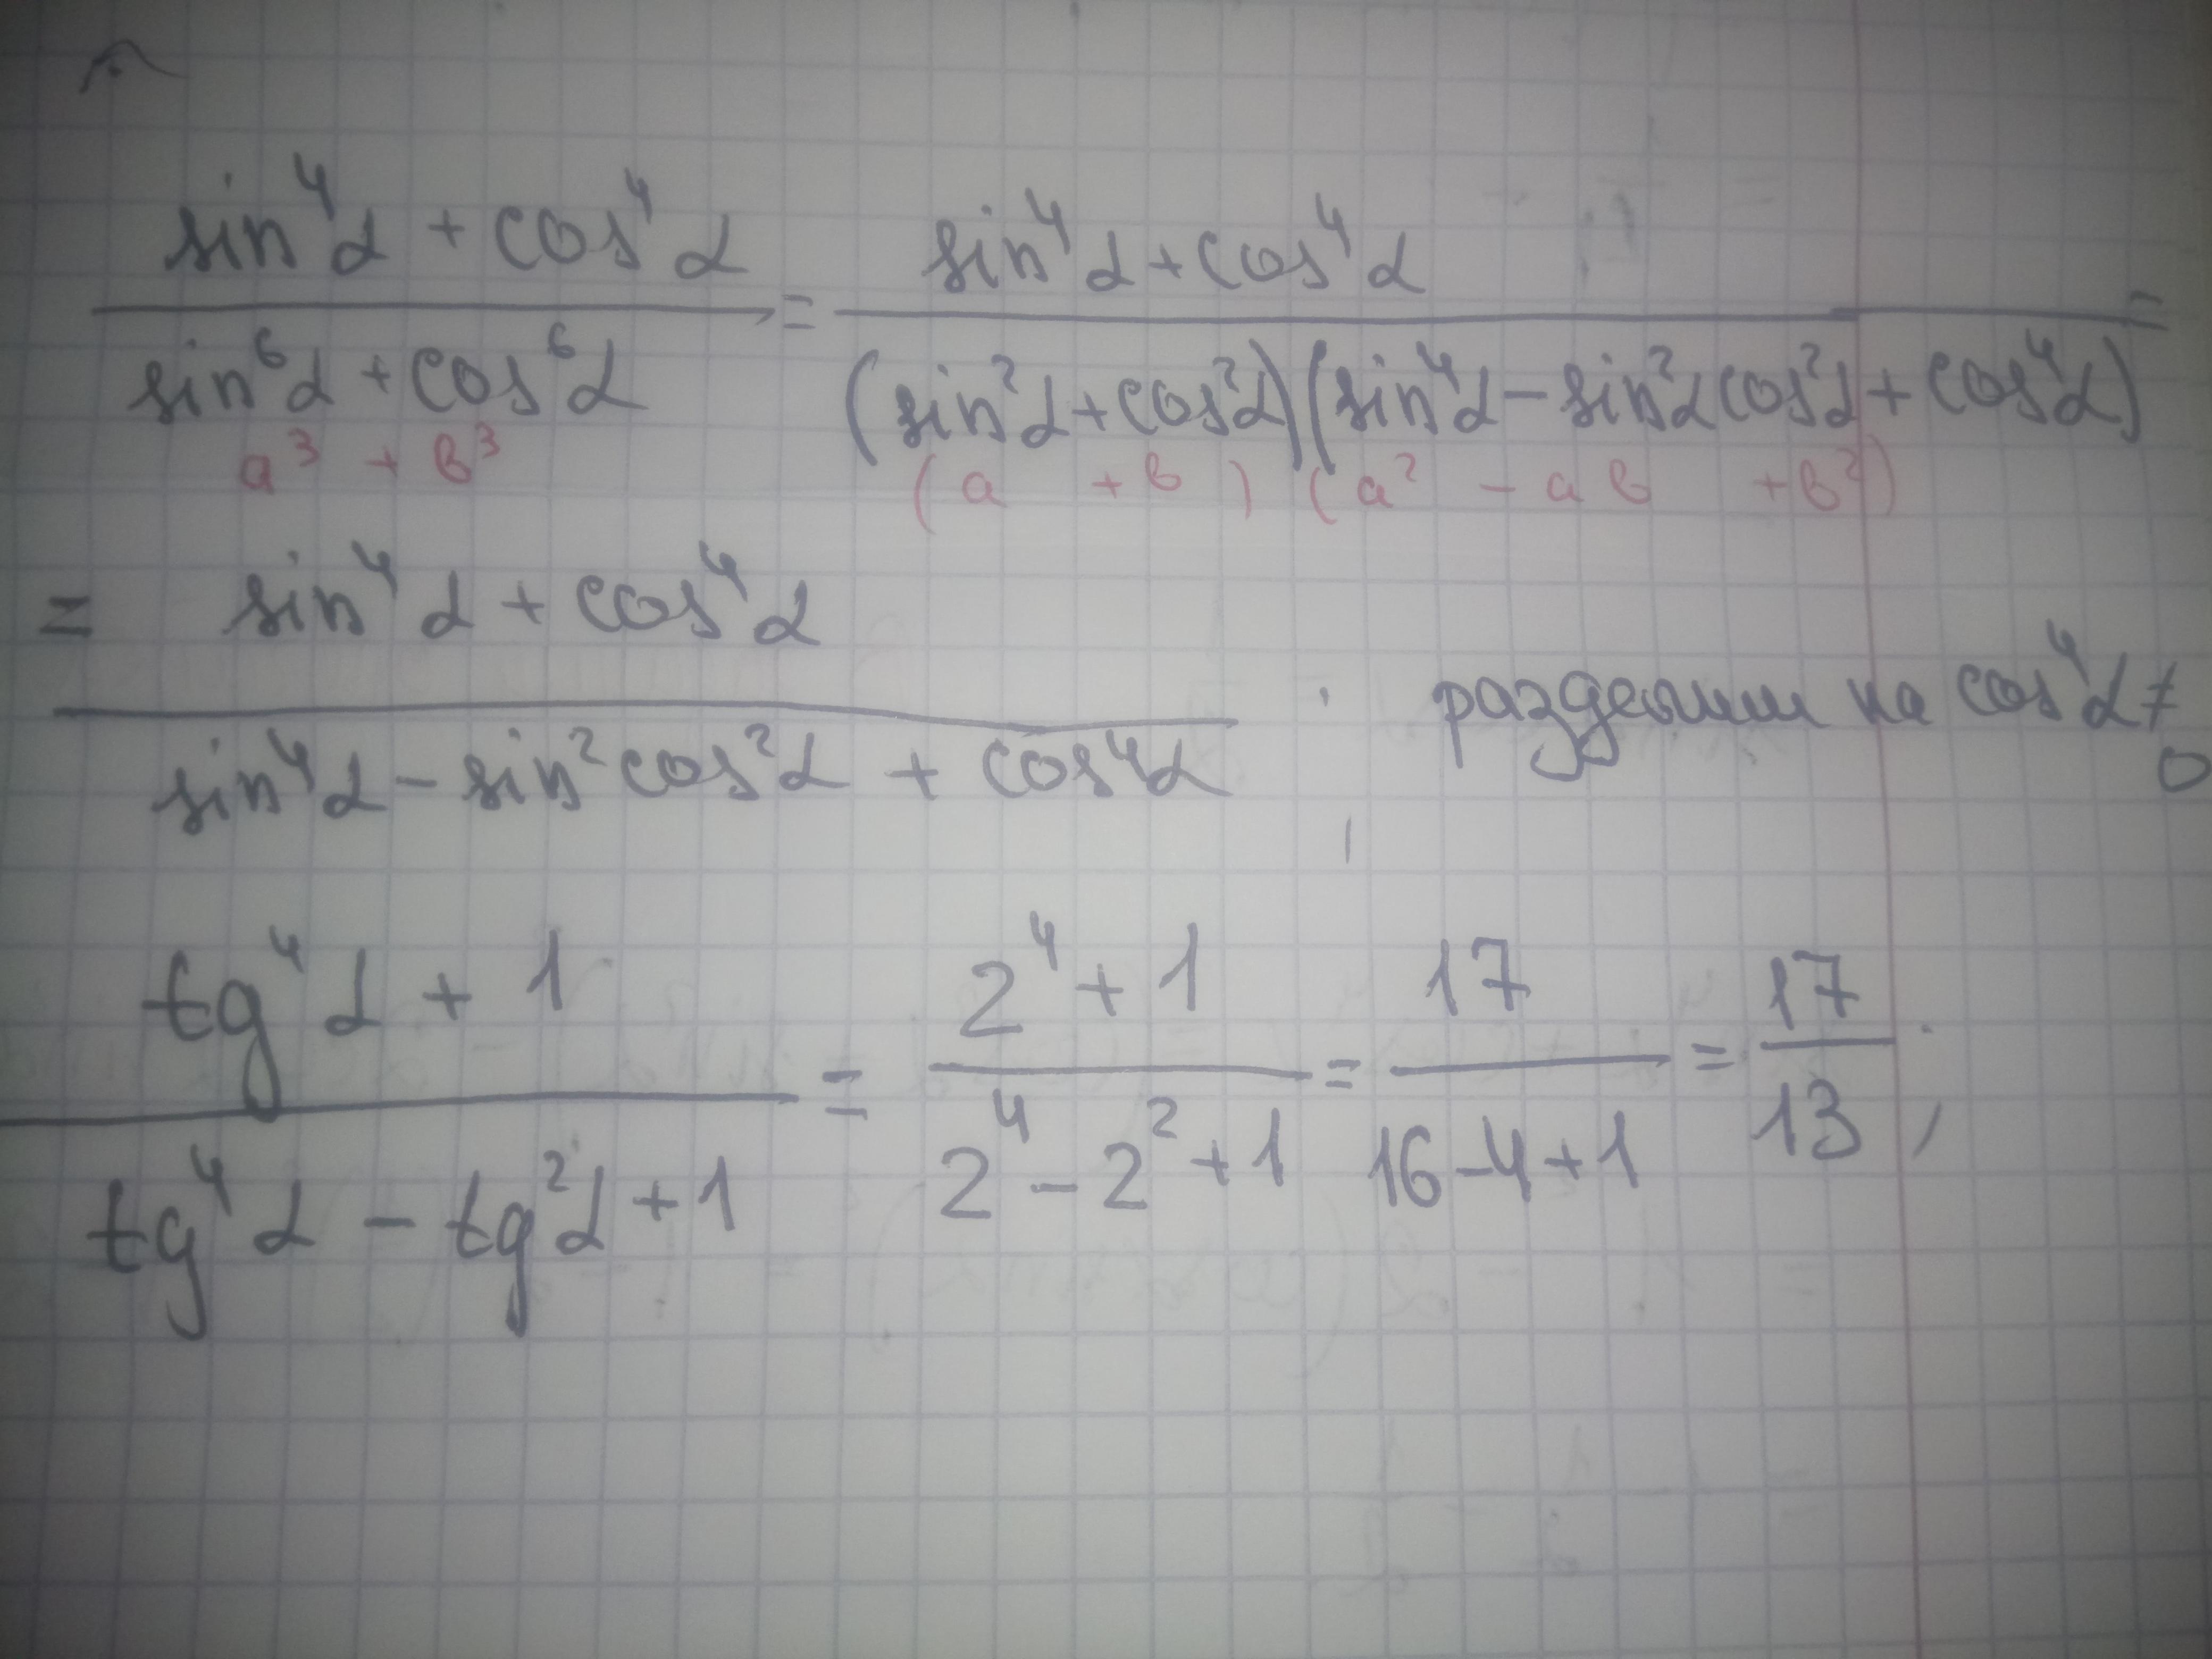 sin⁴α + cos⁴α / sin⁶α + cos⁶α = sin⁴α + cos⁴α / (sin²α + cos²α)(sin⁴α − sin²α cos²α + cos⁴α) =
a³ + в³ (a + в) (a² − a в + в²)
= sin⁴α + cos⁴α / sin⁴α − sin² cos²α + cos⁴α разделим на cos⁴α ≠ 0
tg⁴α + 1 / tg⁴α − tg²α + 1 = 2⁴ + 1 / 2⁴ − 2² + 1 = 17 / 16 − 4 + 1 = 17 / 13 ;